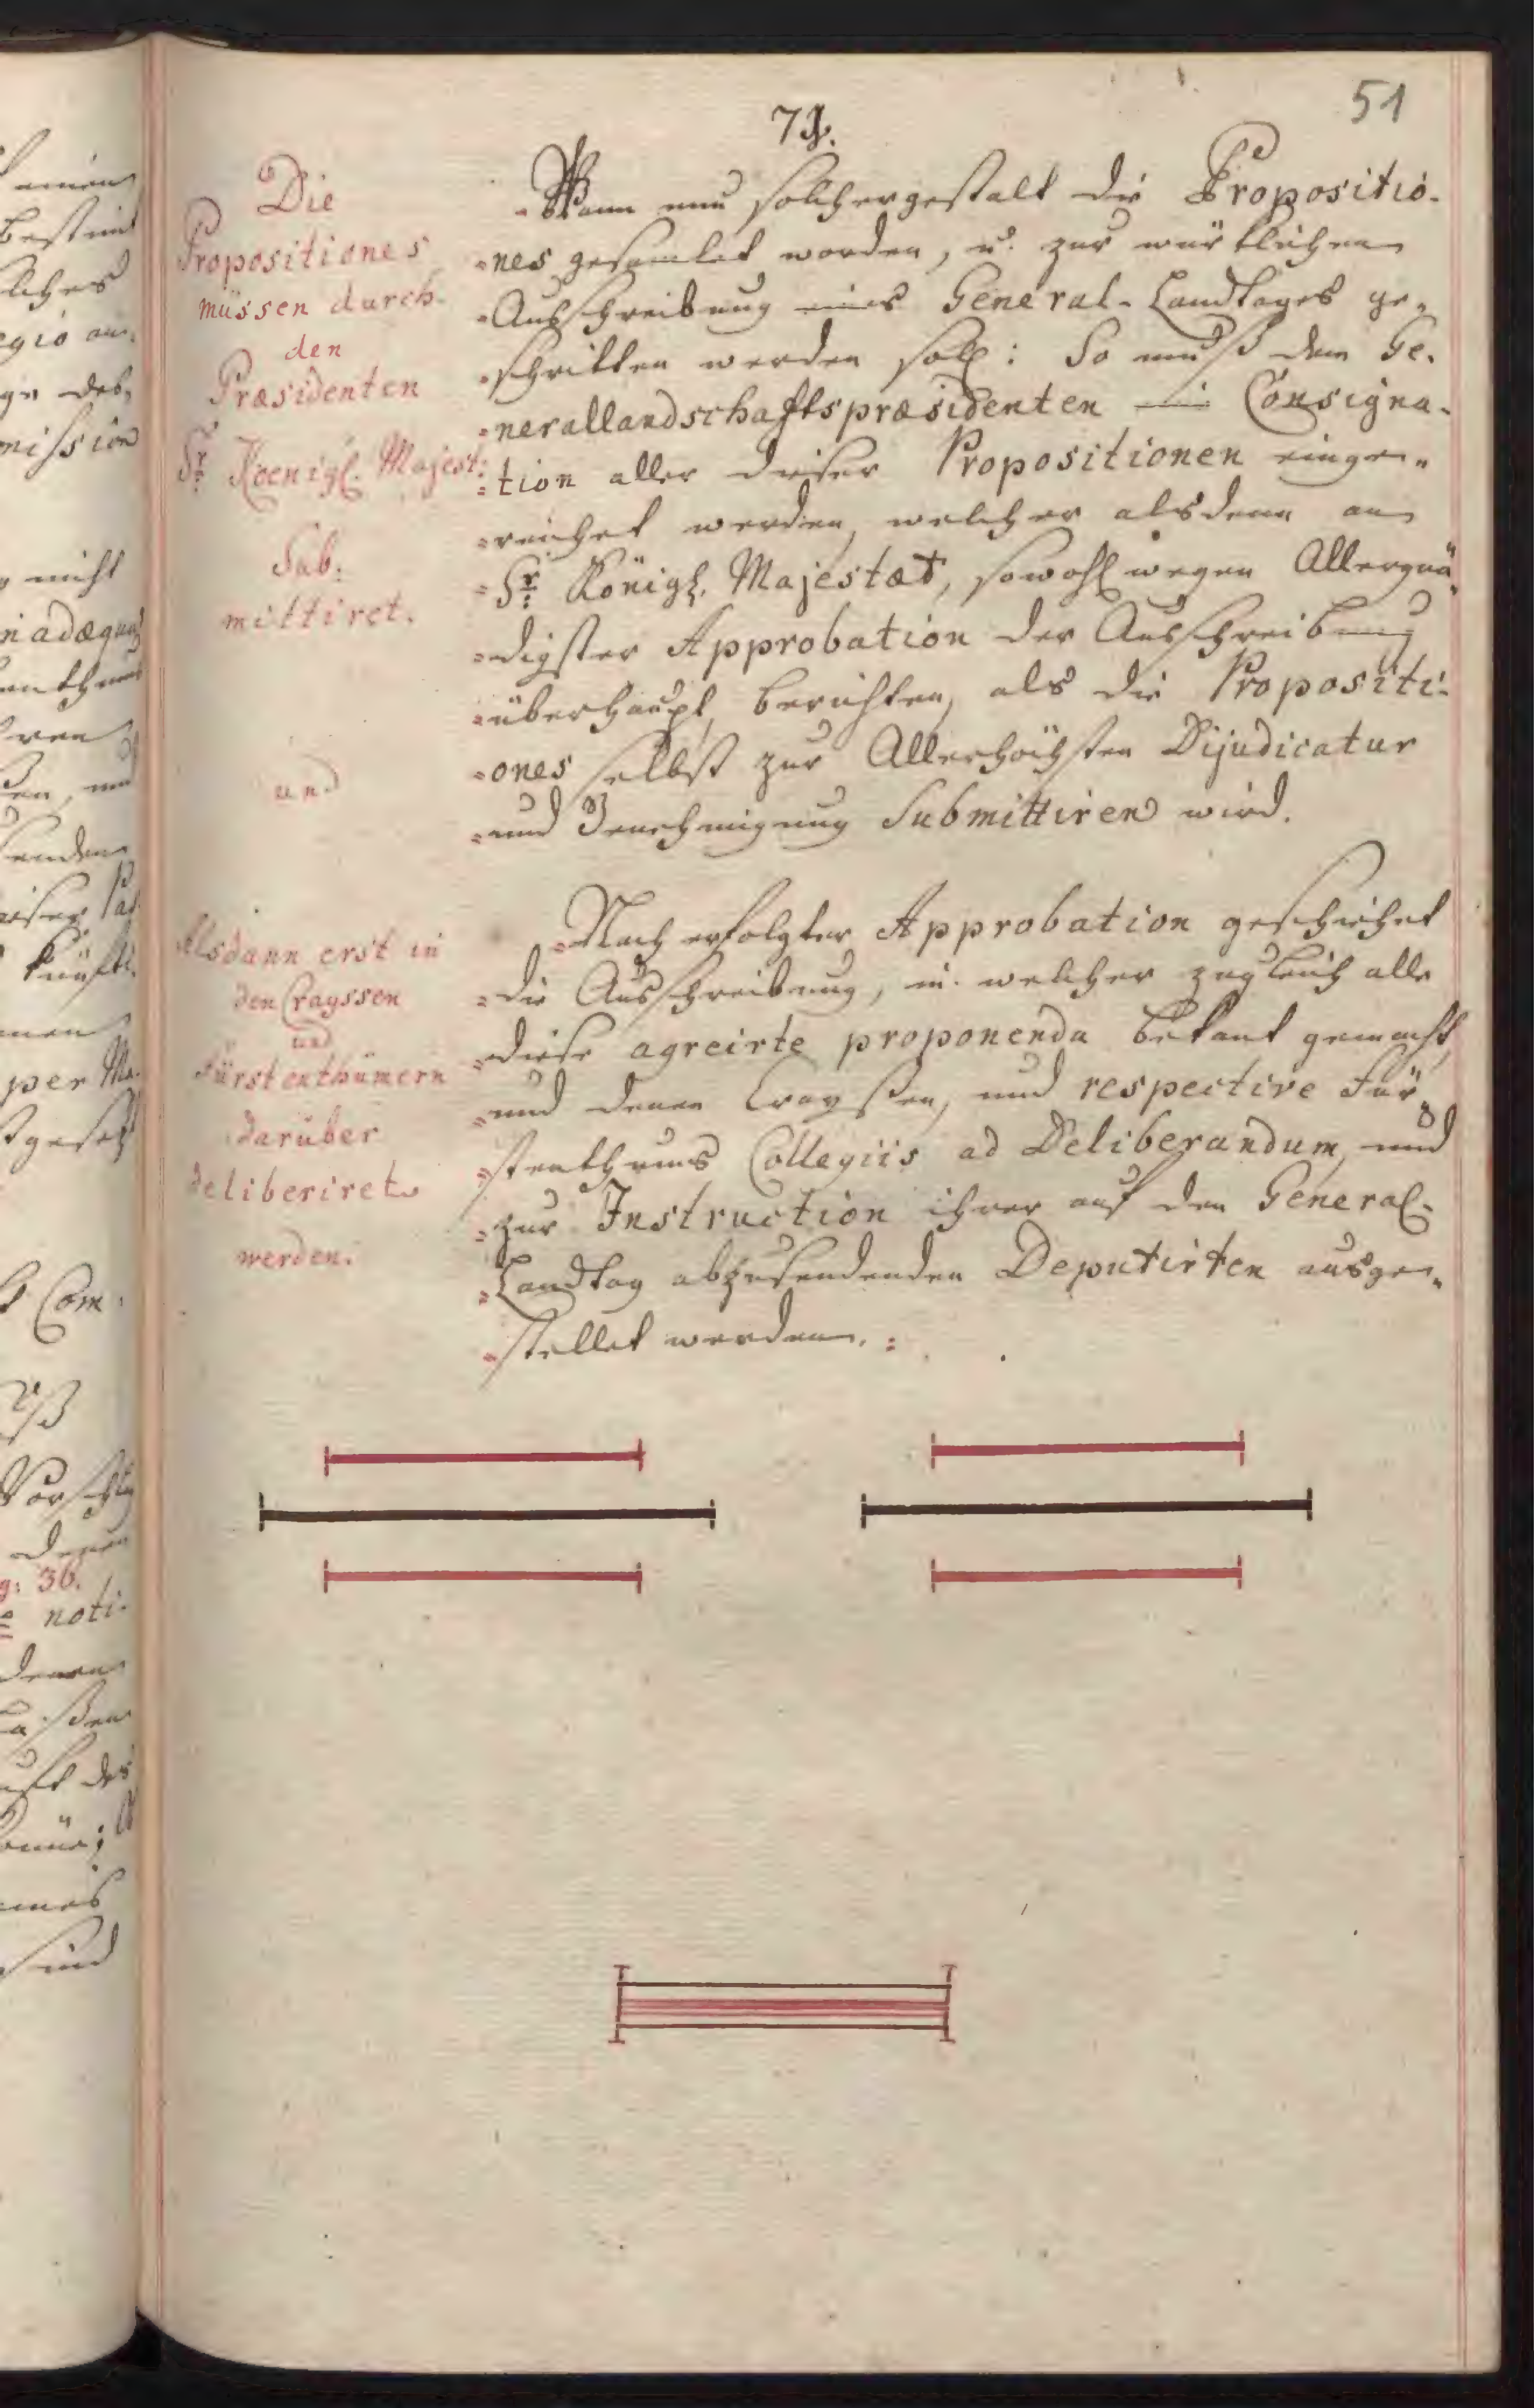 51
71.
Die
Propositiones
müssen durch
den
Præsidenten
Sr Koenigl. Majest:
Sub:
mittiret.
und
Alsdann erst in
den Crayssen
und
Fürstenthümern
darüber
deliberiret
werden.
Wann nun solchergestalt die Propositio-
nes gesamlet worden, u. zur würklichen
Ausschreibung eines General-Landtages ge-
schritten werden soll: So muß dem Ge-
nerallandschaftspræsidenten eine Consigna-
tion aller dieser Propositionen einge-
reichet werden, welcher alsdenn an
Sr Königl. Majestæt, sowohl wegen Allergnä-
digster Approbation der Ausschreibung
überhaupt, berichten, als die Propositi-
ones selbst zur Allerhöchsten Dijudicatur
und Genehmigung Submittiren wird.
Nach erfolgter Approbation geschiehet
die Ausschreibung, in welcher zugleich alle
diese agreirte proponenda bekant gemacht,
und denen Crayssen, und respective Für-
stenthums Collegiis ad Deliberandum, und
zur Instruction ihrer auf den General-
Landtag abzusendenden Deputirten ausge-
stellet werden.